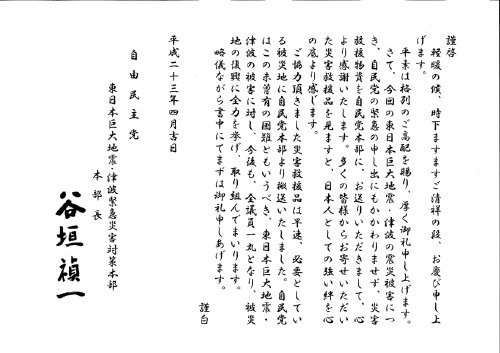 謹啓
軽暖の候、時下ますますご清祥の段、お慶び申し上
げます。
平素は格別のご高配を賜り、厚く御礼申し上げます。
さて、今回の東日本巨大地震・津波の震災被害につ
き、自民党の緊急の申し出にもかかわりませず、災害
救援物資を自民党本部に、お送りいただきまして、心
より感謝いたします。多くの皆様からお寄せいただい
た災害救援品を見ますと、日本人としての強い絆を心
の底より感じます。
ご協力頂きました災害救援品は早速、必要としてい
る被災地に自民党本部より搬送いたしました。自民党
はこの未曽有の困難ともいうべき、東日本巨大地震・
津波の被害に対し、今後も、全議員一丸となり、被災
地の復興に全力を挙げ、取り組んでまいります。
略儀ながら書中にてまずは御礼申しあげます。
謹白
平成二十三年四月吉日
自由民主党
東日本巨大地震・津波緊急災害対策本部
本部長
谷垣禎一